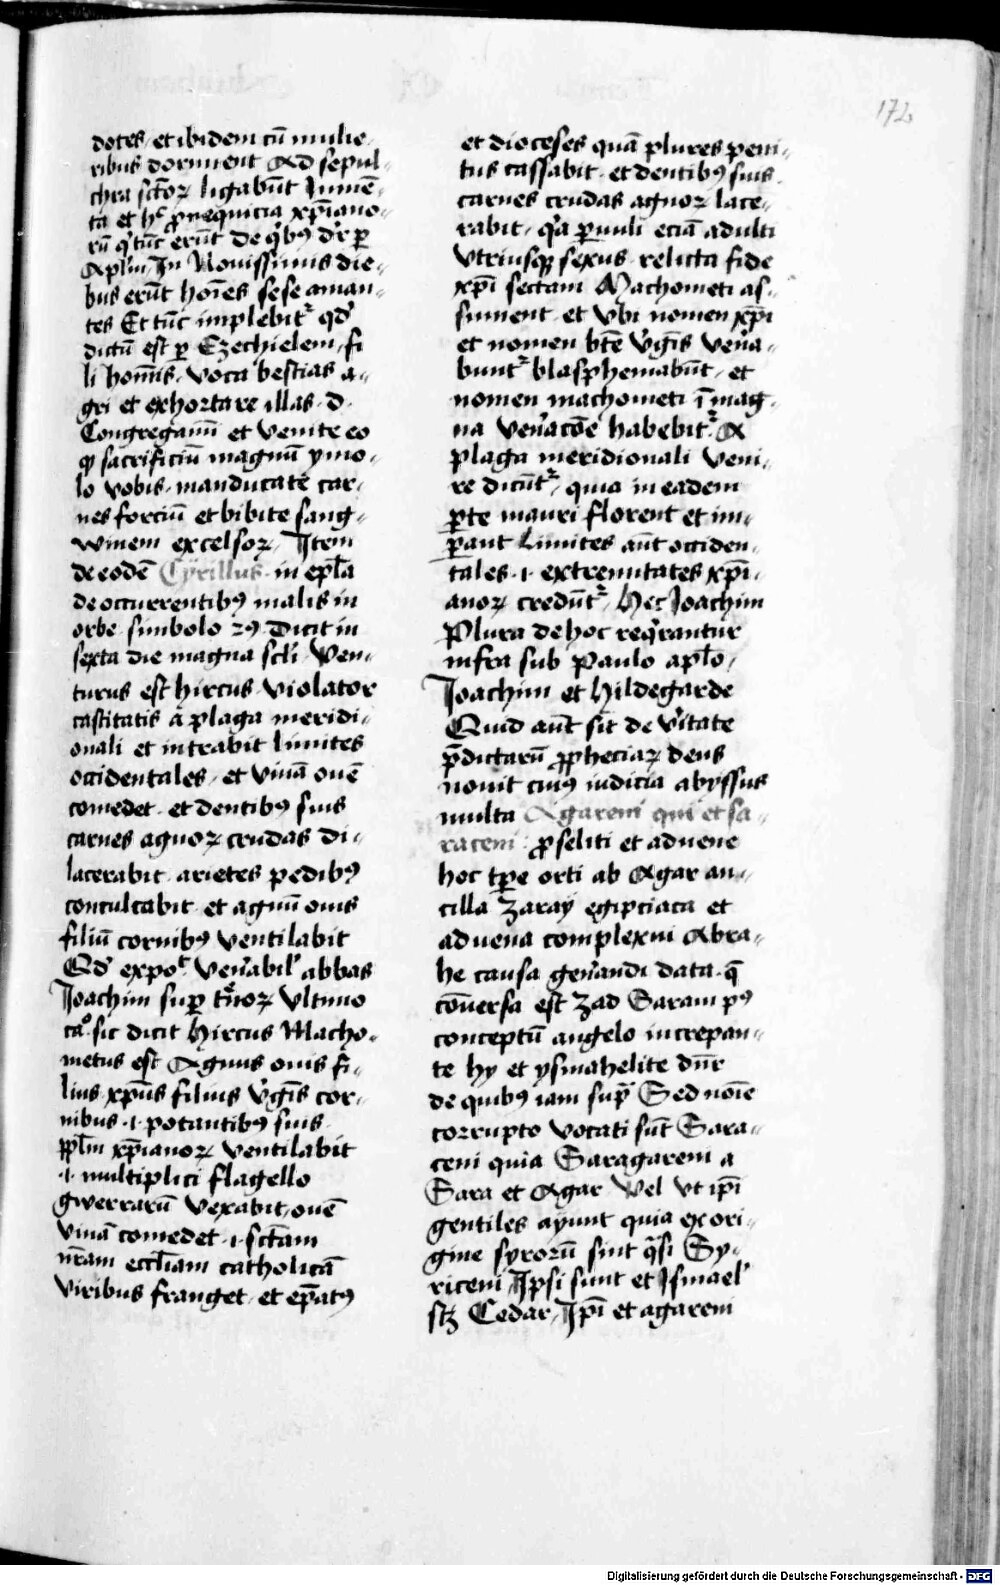 172
dotes, et ibidem cū mulie,,
ribus dormient Ad sepul,,
chra sctoꝝ ligabūt Iumē,,
ta et hᶜ ꝓ nequicia xp̄iano,,
rū q' tūc erūt De q'bꝰ dr̄ ꝑ
Aplm, In Nouissimis die,,
bus erūt hoīes se se aman,,
tes Et tūc implebit' qd'
dictū est ꝑ Ezechielem, fi
li homīs, voca bestias a,,
gri et exhortare illas, d.
Congregamī et venite eo
qꝫ sacrificiū magnū ymo,,
lo vobis, manducate car,,
nes forciū et bibite sang,,
winem excelsoꝝ, Item
de eodē Cyrillus in epl̄a
de occurrentibꝰ malis in
orbe, simbolo 29. Dicit in
sexta die magna scl̄i ven,,
turus est hircus violator
castitatis a plaga meridi,,
onali et intrabit limites
occidentales, et viuā ouē
comedet, et dentibꝰ suis
carnes agnoꝝ crudas di,,
lacerabit, arietes pedibꝰ
conculcabit et agnū ouis
filiū cornibꝰ ventilabit
Qd' expoᵗ veñabil' abbas
Ioachim suꝑ tr̄roꝝ vltimo
caᵒ. sic dicit Hircus Macho,,
metus est Agnus ouis fi,,
lius xp̄us filius v'gīs cor,,
nibus .i. potantibꝰ suis
ppl̄m xp̄ianoꝝ ventilabit
.i. multiplici flagello
gwerrarū vexabit, ouē
viuā comedet .i. sctam
nr̄am eccl̄iam catholicā
viribus franget, et ep̄atꝰ
et dioceses quā plures peni,,
tus cassabit, et dentibꝰ suis
carnes crudas agnoꝝ lace,,
rabit, q'a ꝑuuli eciā adulti
vtriusqꝫ sexus, relicta fide
xp̄i sectam Machometi as,,
sument, et vbi nomen xp̄i
et nomen btē v'gīs veñā,,
bunt' blasphemabūt, et
nomen machometi ī mag,,
na veñacōe habebit'. A
plaga meridionali veni,,
re dicūt', quia in eadem
ꝑte mauri florent et im,,
ꝑant Limites aūt occiden,,
tales .i. extremitates xp̄i,,
anoꝝ credūt', Hec Ioachim
Plura de hoc req'rantur
infra sub Paulo apl̄o,
Ioachim et Hildegarde
Quid aūt sit de v'itate
p̄dictarū ꝓpheciaꝝ deus
nouit cuiꝰ iudicia abyssus
multa Agareni qui et sa,,
raceni, ꝓseliti et aduene
hoc tꝑe orti ab Agar an,,
cilla Zaray egipciaca et
aduena complexui Abra,,
he causa geñandi data, q̄
cōuersa est Zad Saram pꝰ
conceptū angelo increpan,,
te hy et ysmahelite dn̄r
de quibꝰ iam supͣ Sed noīe
corrupto vocati sūt Sara,,
ceni quia Saragareni a
Sara et Agar Vel vt ip̄i
gentiles ayunt quia ex ori,,
gine syrorū sint q̄si Sy,,
riceni, Ipsi sunt et Ismael'
stꝫ Cedar, Ip̄i et agareni
Digitalisierung gefördert durch die Deutsche Forschungsgemeinschaft - DFG